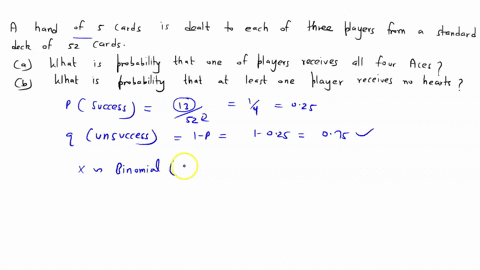 A hand of 5 cards is dealt to each of three players from a standard
deck of 52 cards.
(a) What is probability that one of players receives all four Aces?
(b) What is probability that at least one player receives no hearts?
P(success) = 13/52 = 1/4 = 0.25
q (unsuccess) = 1-P = 1-0.25 = 0.75 ✓
X ~ Binomial (